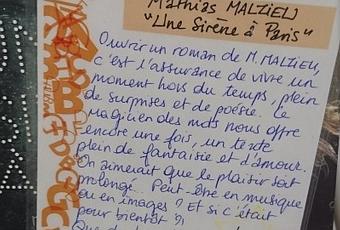 Mathias MALZIEU
"Une Sirène à Paris"
Ouvrir un roman de M. MALZIEU,
c'est l'assurance de vivre un
moment hors du temps, plein
de surprises et de poésie. Le
magicien des mots nous offre
encore une fois, un texte
plein de fantaisie et d'amour.
On aimerait que le plaisir soit
prolongé. Peut-être en musique
ou en images ? Et si c'était
pour bientôt ?!